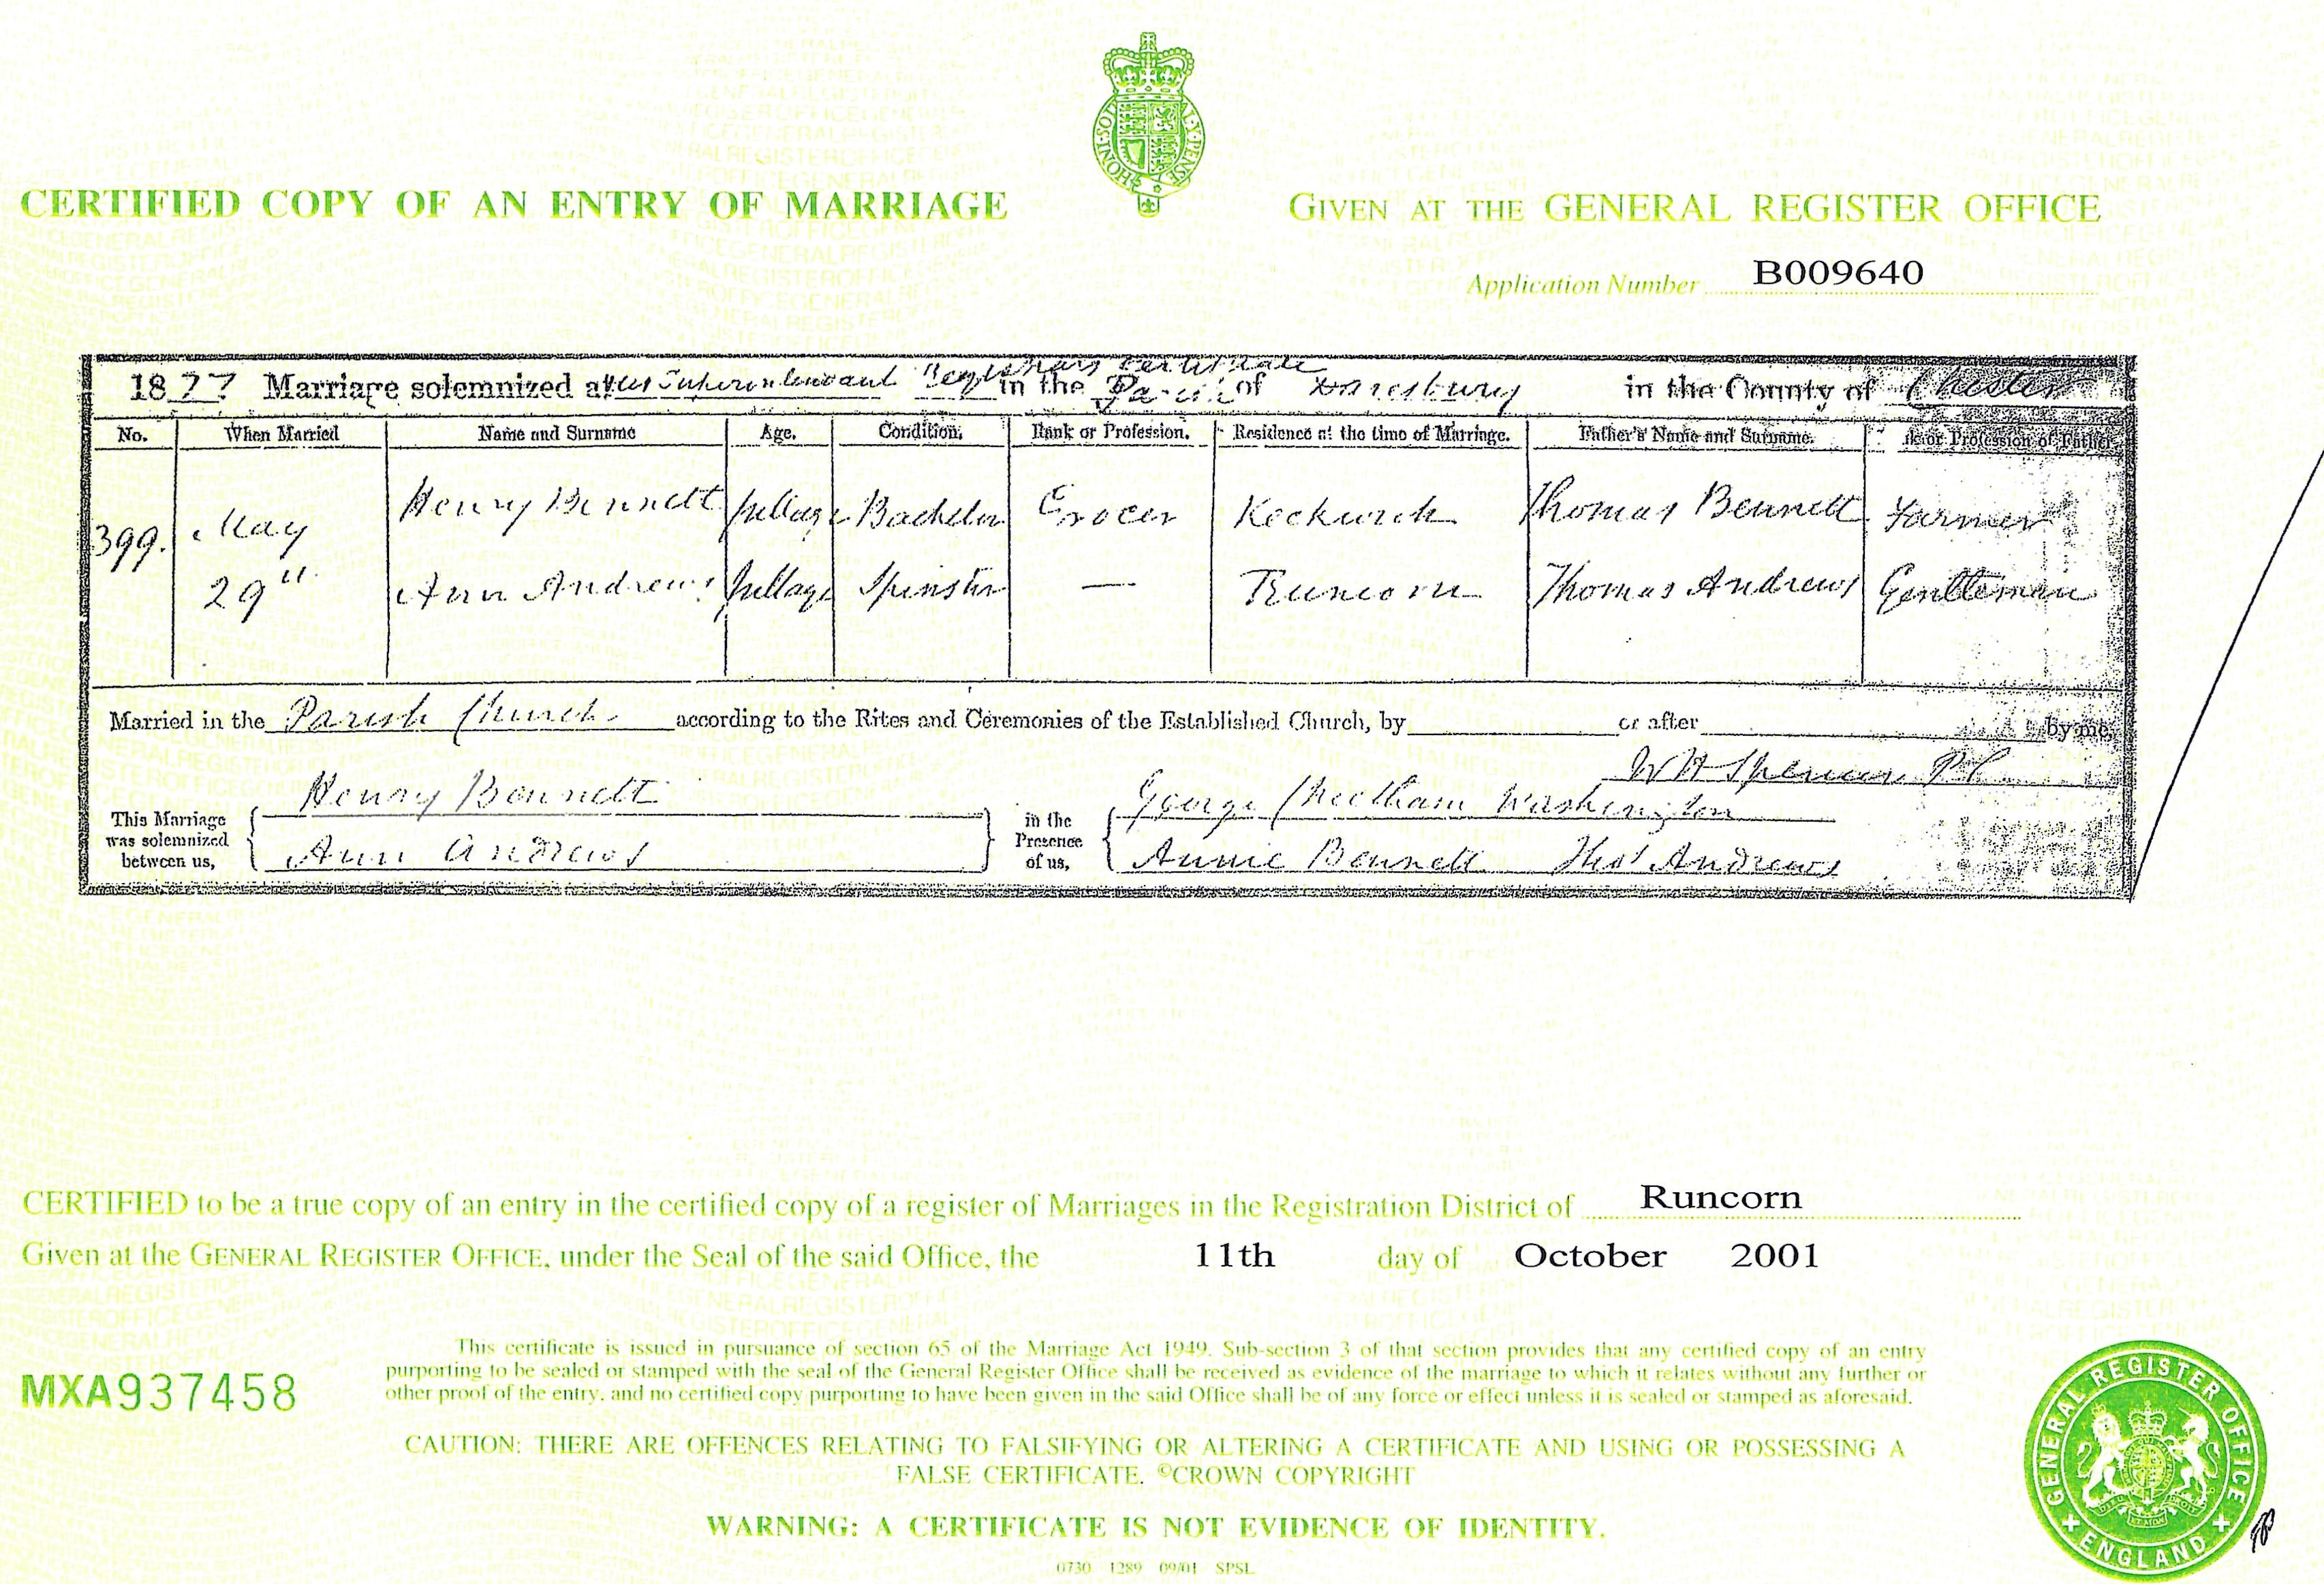 CERTIFIED COPY OF AN ENTRY OF MARRIAGE
GIVEN AT THE GENERAL REGISTER OFFICE
Application Number B009640
1877 Marriage solemnized at Superintendant Registrars Certificate in the Parish of Daresbury in the County of Chester
No. When Married Name and Surname Age. Condition. Rank or Profession. Residence at the time of Marriage. Father's Name and Surname. Profession of Father.
399. May Henry Bennett full age Bachelor Grocer Keckwick Thomas Bennett Farmer
29 Ann Andrews full age Spinster — Runcorn Thomas Andrews Gentleman
Married in the Parish Church according to the Rites and Ceremonies of the Established Church, by or after by me,
W H Spencer P C
This Marriage was solemnized between us, Henry Bennett Ann Andrews
in the Presence of us, George Cheetham Washington
Annie Bennett Thos Andrews
CERTIFIED to be a true copy of an entry in the certified copy of a register of Marriages in the Registration District of Runcorn
Given at the GENERAL REGISTER OFFICE, under the Seal of the said Office, the 11th day of October 2001
This certificate is issued in pursuance of section 65 of the Marriage Act 1949. Sub-section 3 of that section provides that any certified copy of an entry
purporting to be sealed or stamped with the seal of the General Register Office shall be received as evidence of the marriage to which it relates without any further or
other proof of the entry, and no certified copy purporting to have been given in the said Office shall be of any force or effect unless it is sealed or stamped as aforesaid.
MXA937458
CAUTION: THERE ARE OFFENCES RELATING TO FALSIFYING OR ALTERING A CERTIFICATE AND USING OR POSSESSING A
FALSE CERTIFICATE. ©CROWN COPYRIGHT
WARNING: A CERTIFICATE IS NOT EVIDENCE OF IDENTITY.
0730 1289 09/01 SPSL
GENERAL REGISTER OFFICE
ENGLAND